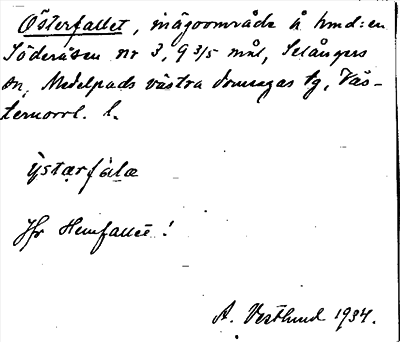 Österfallet, inägoområde å hmd:en
Söderåsen nr 3, 9 3/5 mål, Selångers
sn, Medelpads västra domsagas tg, Väs-
ternorrl. l.
ÿstạrfạlạ
Jfr Hemfallet!
A. Vestlund 1934.